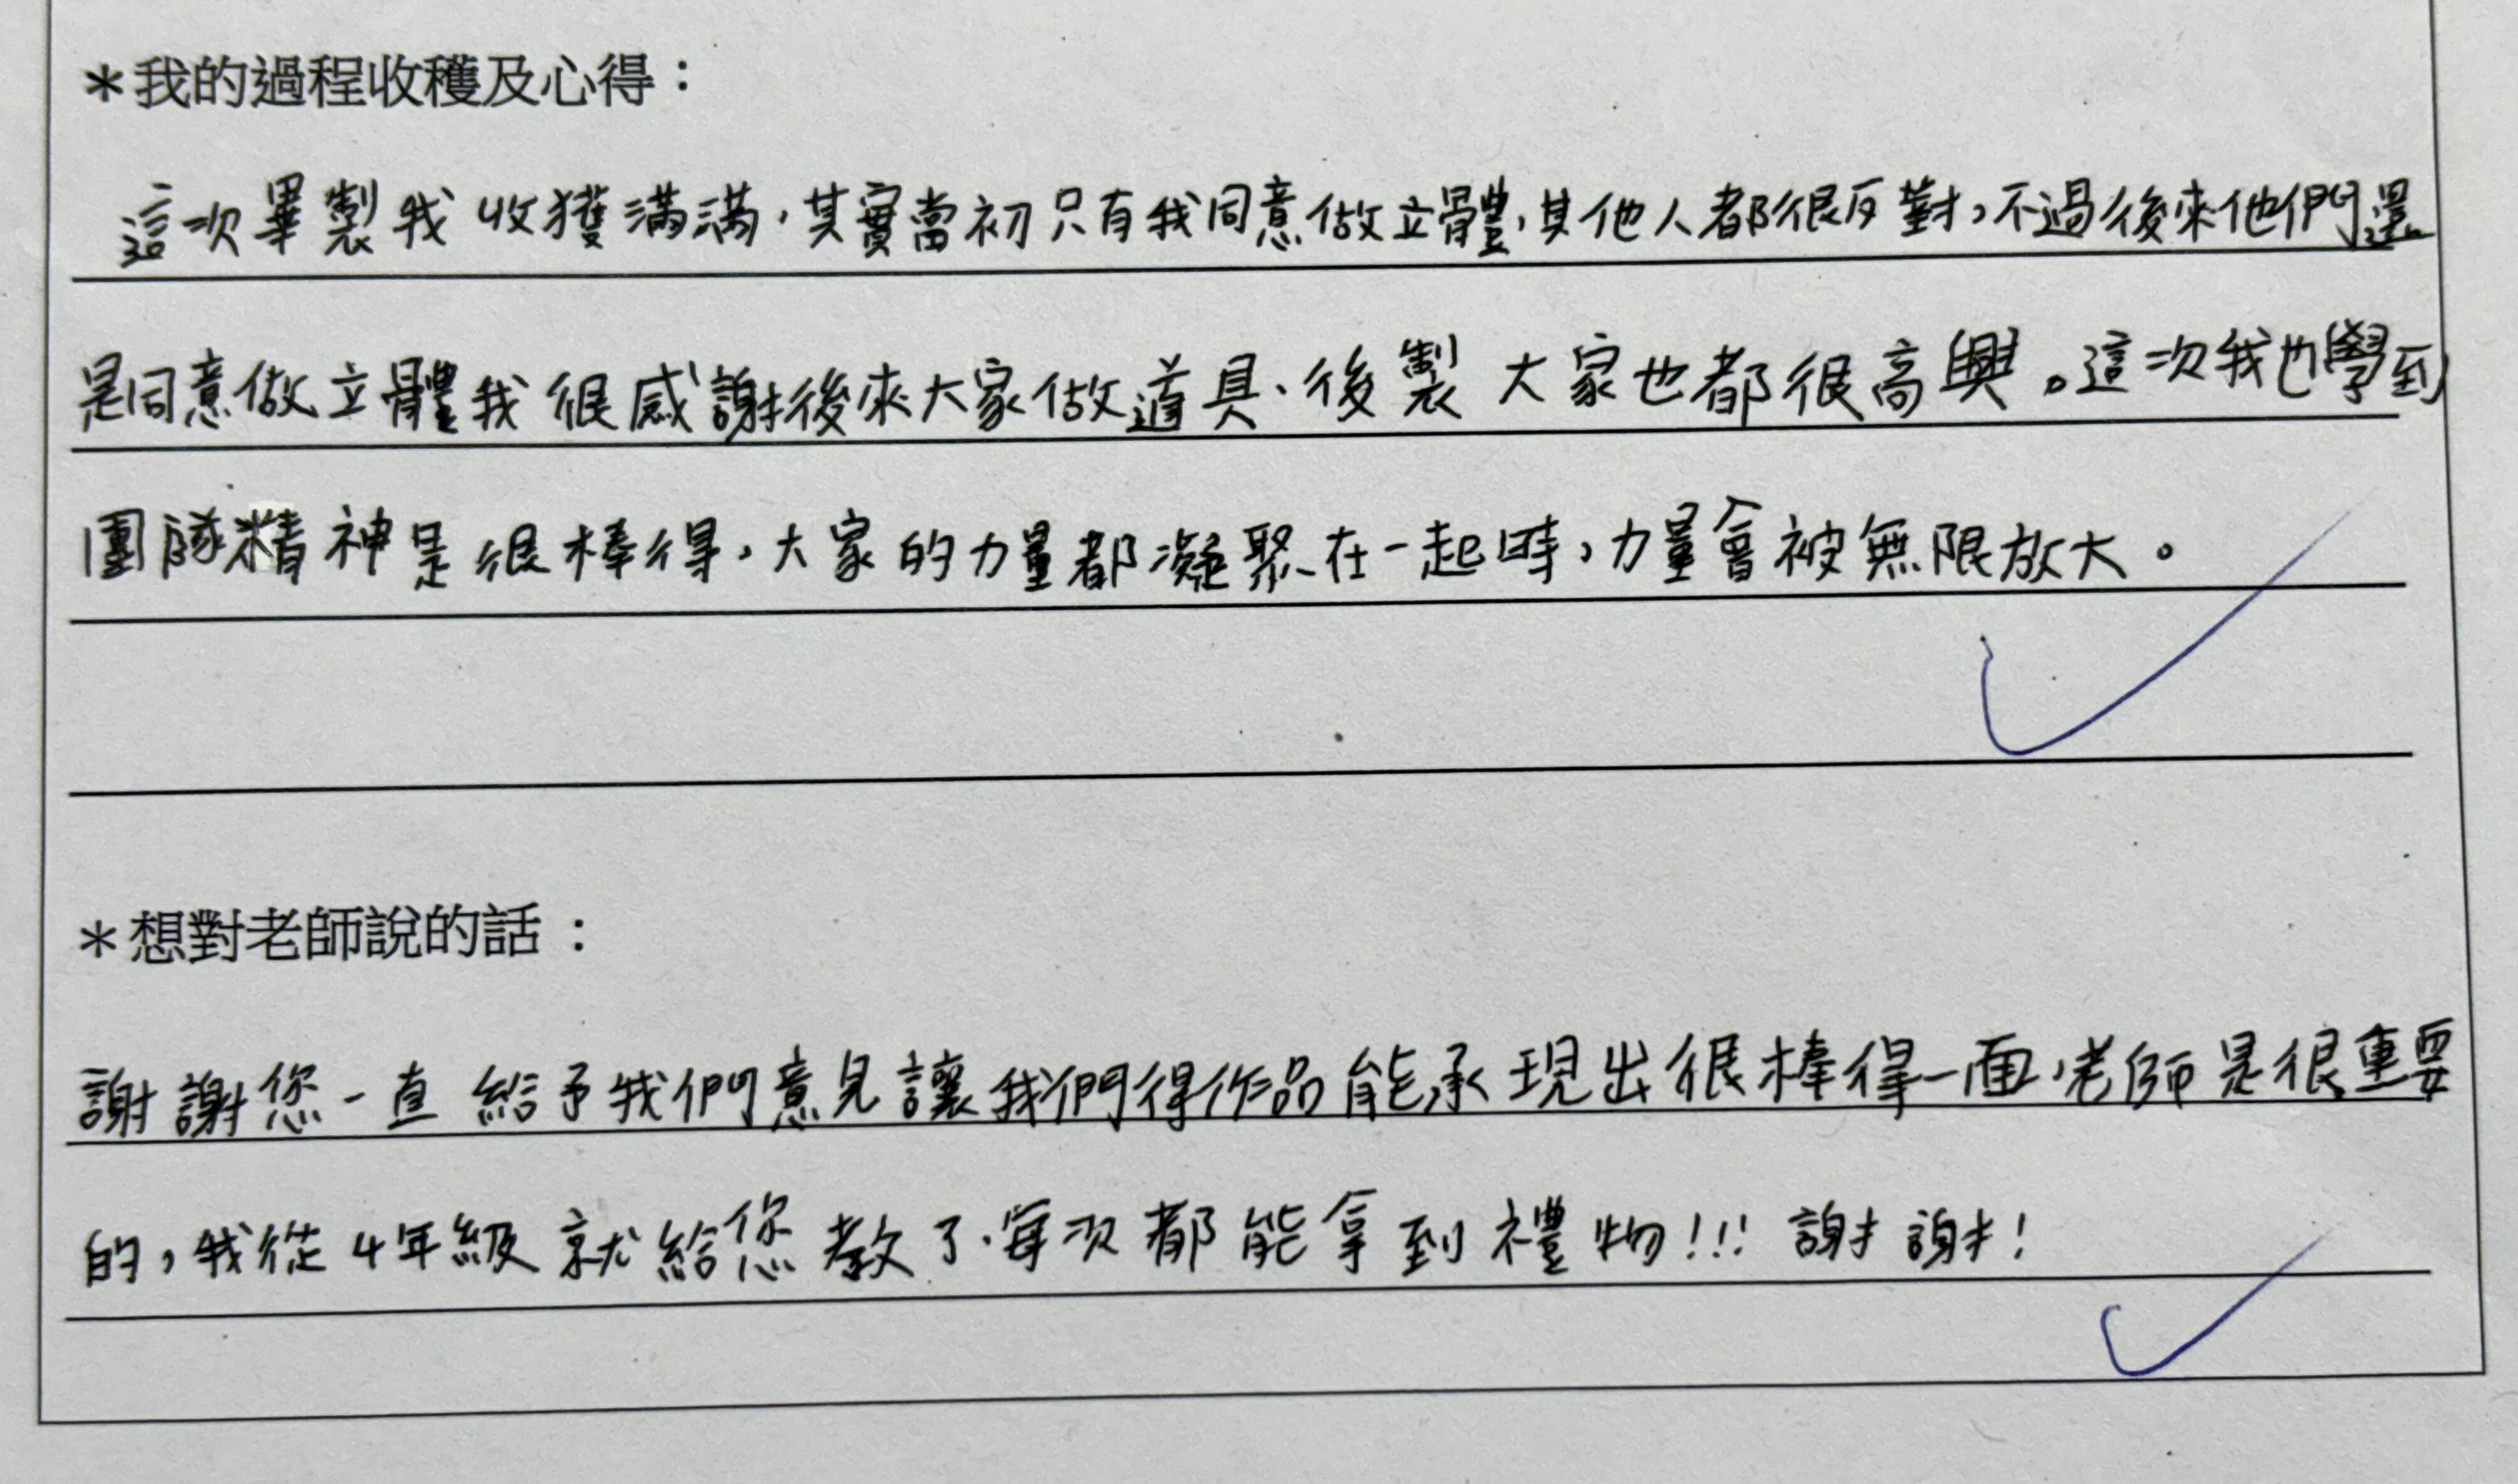 ＊我的過程收穫及心得：
這次畢製我收獲滿滿，其實當初只有我同意做立體，其他人都很反對，不過後來他們還
是同意做立體我很感謝後來大家做道具、後製大家也都很高興。這次我也學到
團隊精神是很棒得，大家的力量都凝聚在一起時，力量會被無限放大。
＊想對老師說的話：
謝謝您一直給予我們意見讓我們得作品能承現出很棒得一面，老師是很重要
的，我從4年級就給您教了，每次都能拿到禮物!!! 謝謝!